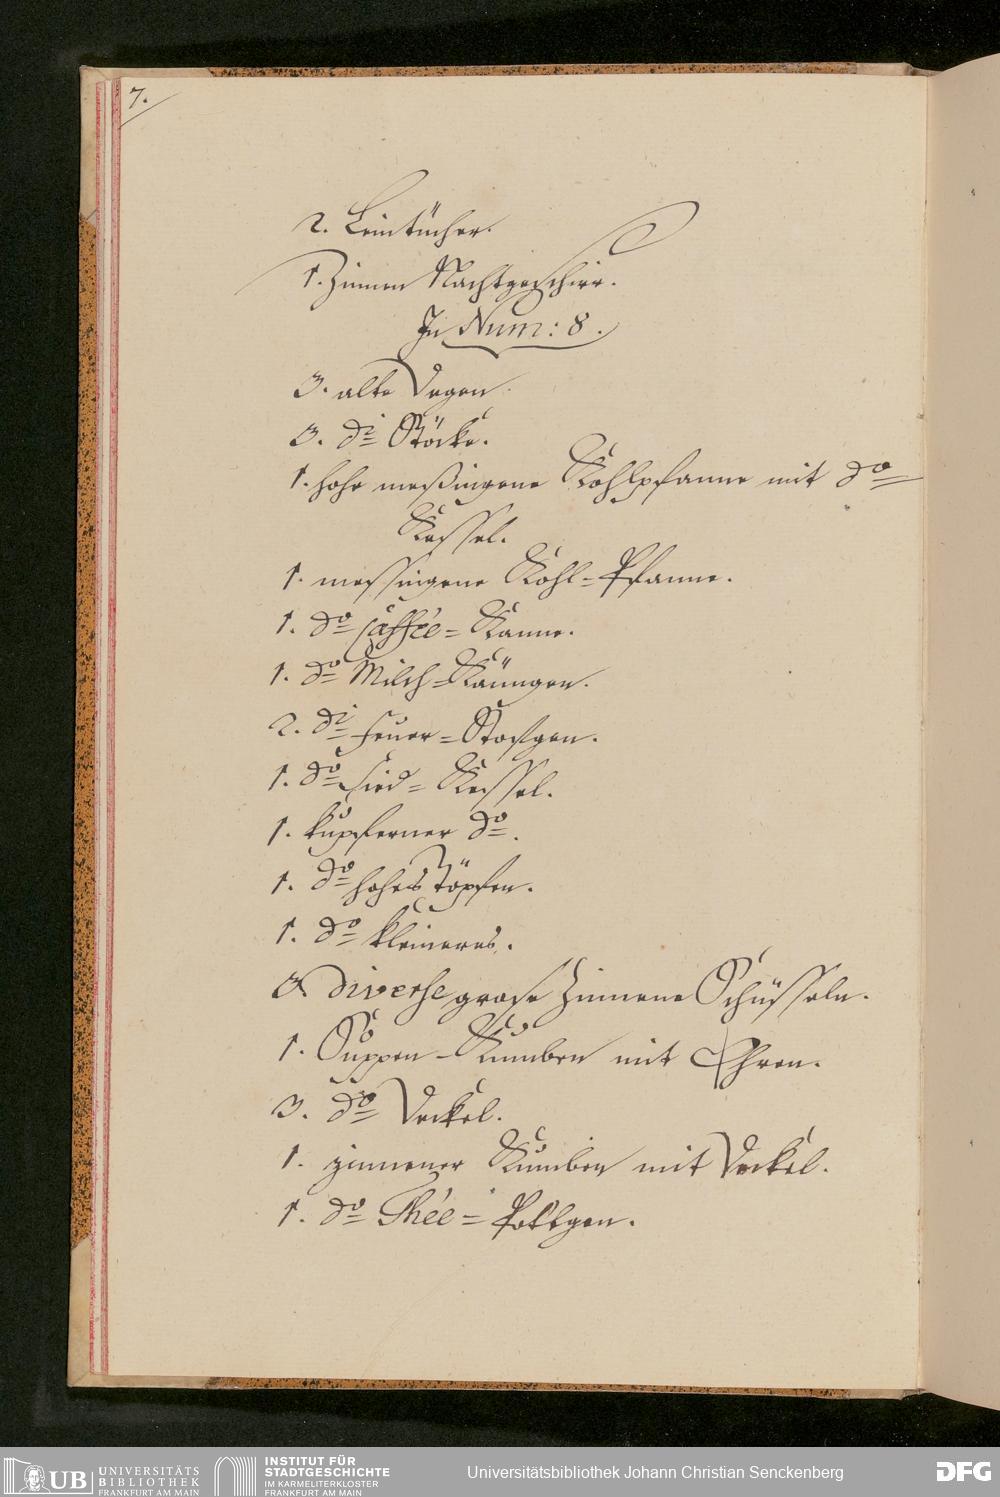 7.
2. Leintücher.
1. Zinnen Nachtgeschirr.
In Num: 8.
3. alte Degen.
3. di Stöcke.
1. hohe meßingene Kohlpfanne mit do
Kessel.
1. messingene Kohl=Pfanne.
1. do Caffée=Kanne.
1. do Milch=Känngen.
2. di Feuer=Stofgen.
1. do Sied=Kessel.
1. kupferner do.
1. do hohes Töpfen.
1. do kleineres.
diverse grose Zinnene Schüsseln.
1. Suppen-Kumben mit Ohren.
3. do Deckel.
1. zinnener Kumben mit Deckel.
1. do Thée=Pottgen.
UB UNIVERSITÄTS
BIBLIOTHEK
FRANKFURT AM MAIN
INSTITUT FÜR
STADTGESCHICHTE
IM KARMELITERKLOSTER
FRANKFURT AM MAIN
Universitätsbibliothek Johann Christian Senckenberg
DFG